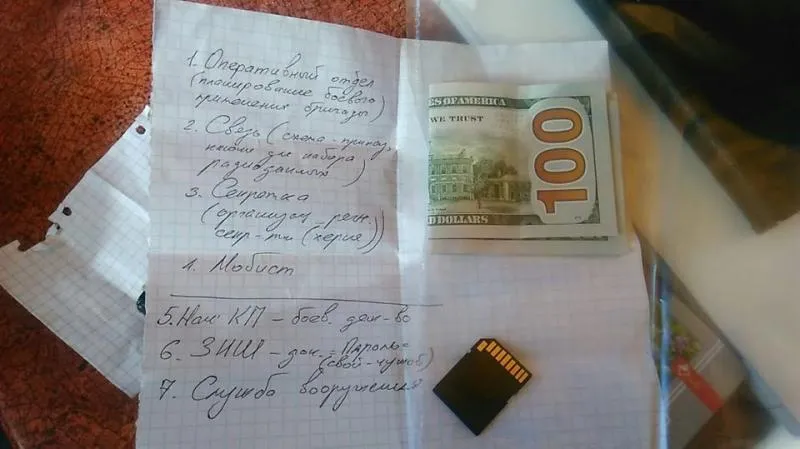 1. Оперативный отдел
(планирование боевого
применения бригады)
2. Связь (схема-приказ,
ключи для набора
радиоданных)
3. Секретка
(организац
секр-ти
1. Мобист
5. Нач КП – боев. деж-во
6. ЗНШ – док. "Пароль"
(свой-чужой)
7. Служба вооружения
ES OF AMERICA
WE TRUST
100
D DOLLARS